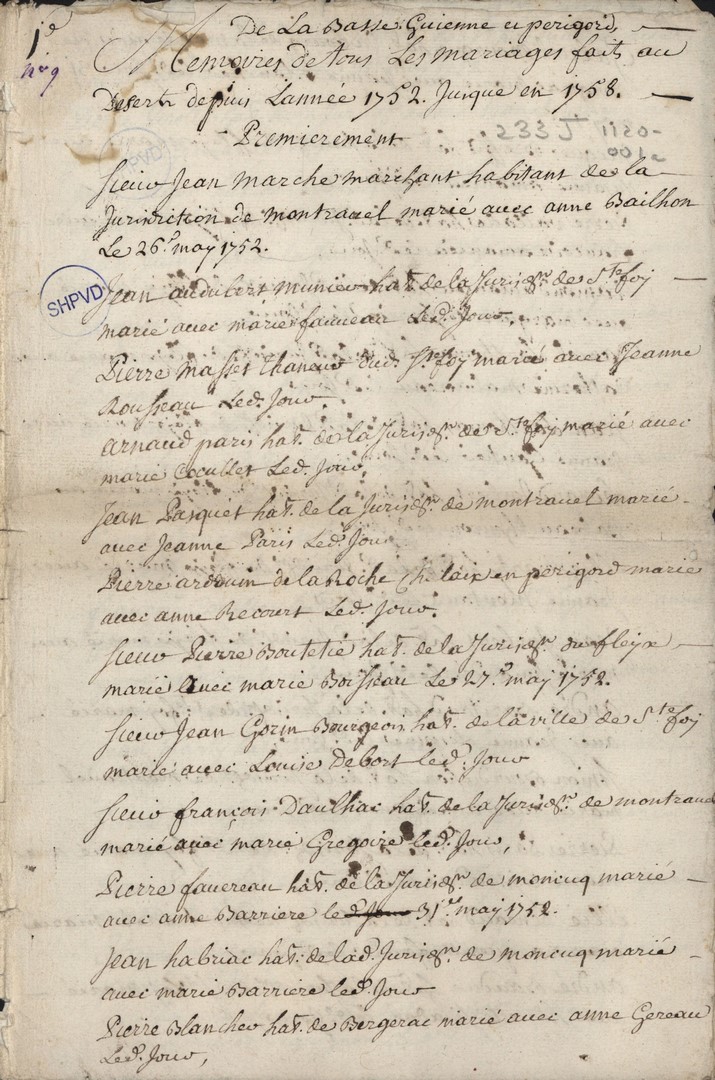 De La Basse Guienne et perigord,
Memoires de tous Les mariages faits au
Desert depuis L'année 1752. Jusque en 1758.
Premierement
233 J 1120-
001a
SHPVD
Sieur Jean Marche marchant habitant de la
Jurisdiction de montravel marié avec anne Bailhon
Le 26e. may 1752.
SHPVD
Jean audubert munier hat. de la Jurisdon. de Ste foy
marié avec marie fauveau Led. Jour.
Pierre Masset Ste foy marié avec Jeanne
Rousseau Led. Jour.
arnaud paris hat. de la Jurisdon. de Ste foy marié avec
marie Cocullet Led. Jour,
Jean Pasquet hat. de la Jurisdon. de montravel marié
avec Jeanne Paris Led. Jour
Pierre ardouin de la Roche Chalaix en perigord marie
avec anne Recourt Led. Jour.
Sieur Pierre Boutetié hat. de la Jurisdon. du fleyx
marié avec marie Boisseau Le 27e. may 1752.
Sieur Jean Gorin Bourgeois hat. de la ville de Ste foy
marié avec Louise Debort led. Jour
Sieur françois Daulhac hat. de la Jurisdon. de montravel
marié avec marie Gregoire led. Jour,
Pierre favereau hat. de la Jurisdon. de moncuq marié
avec anne Barriere le d. Jour 31e. may 1752.
Jean habriac hat. de lad. Jurisdon. de moncuq marié
avec marie Barriere led. Jour
Pierre Blancher hat. de Bergerac marié avec anne Gereau
Led. Jour,